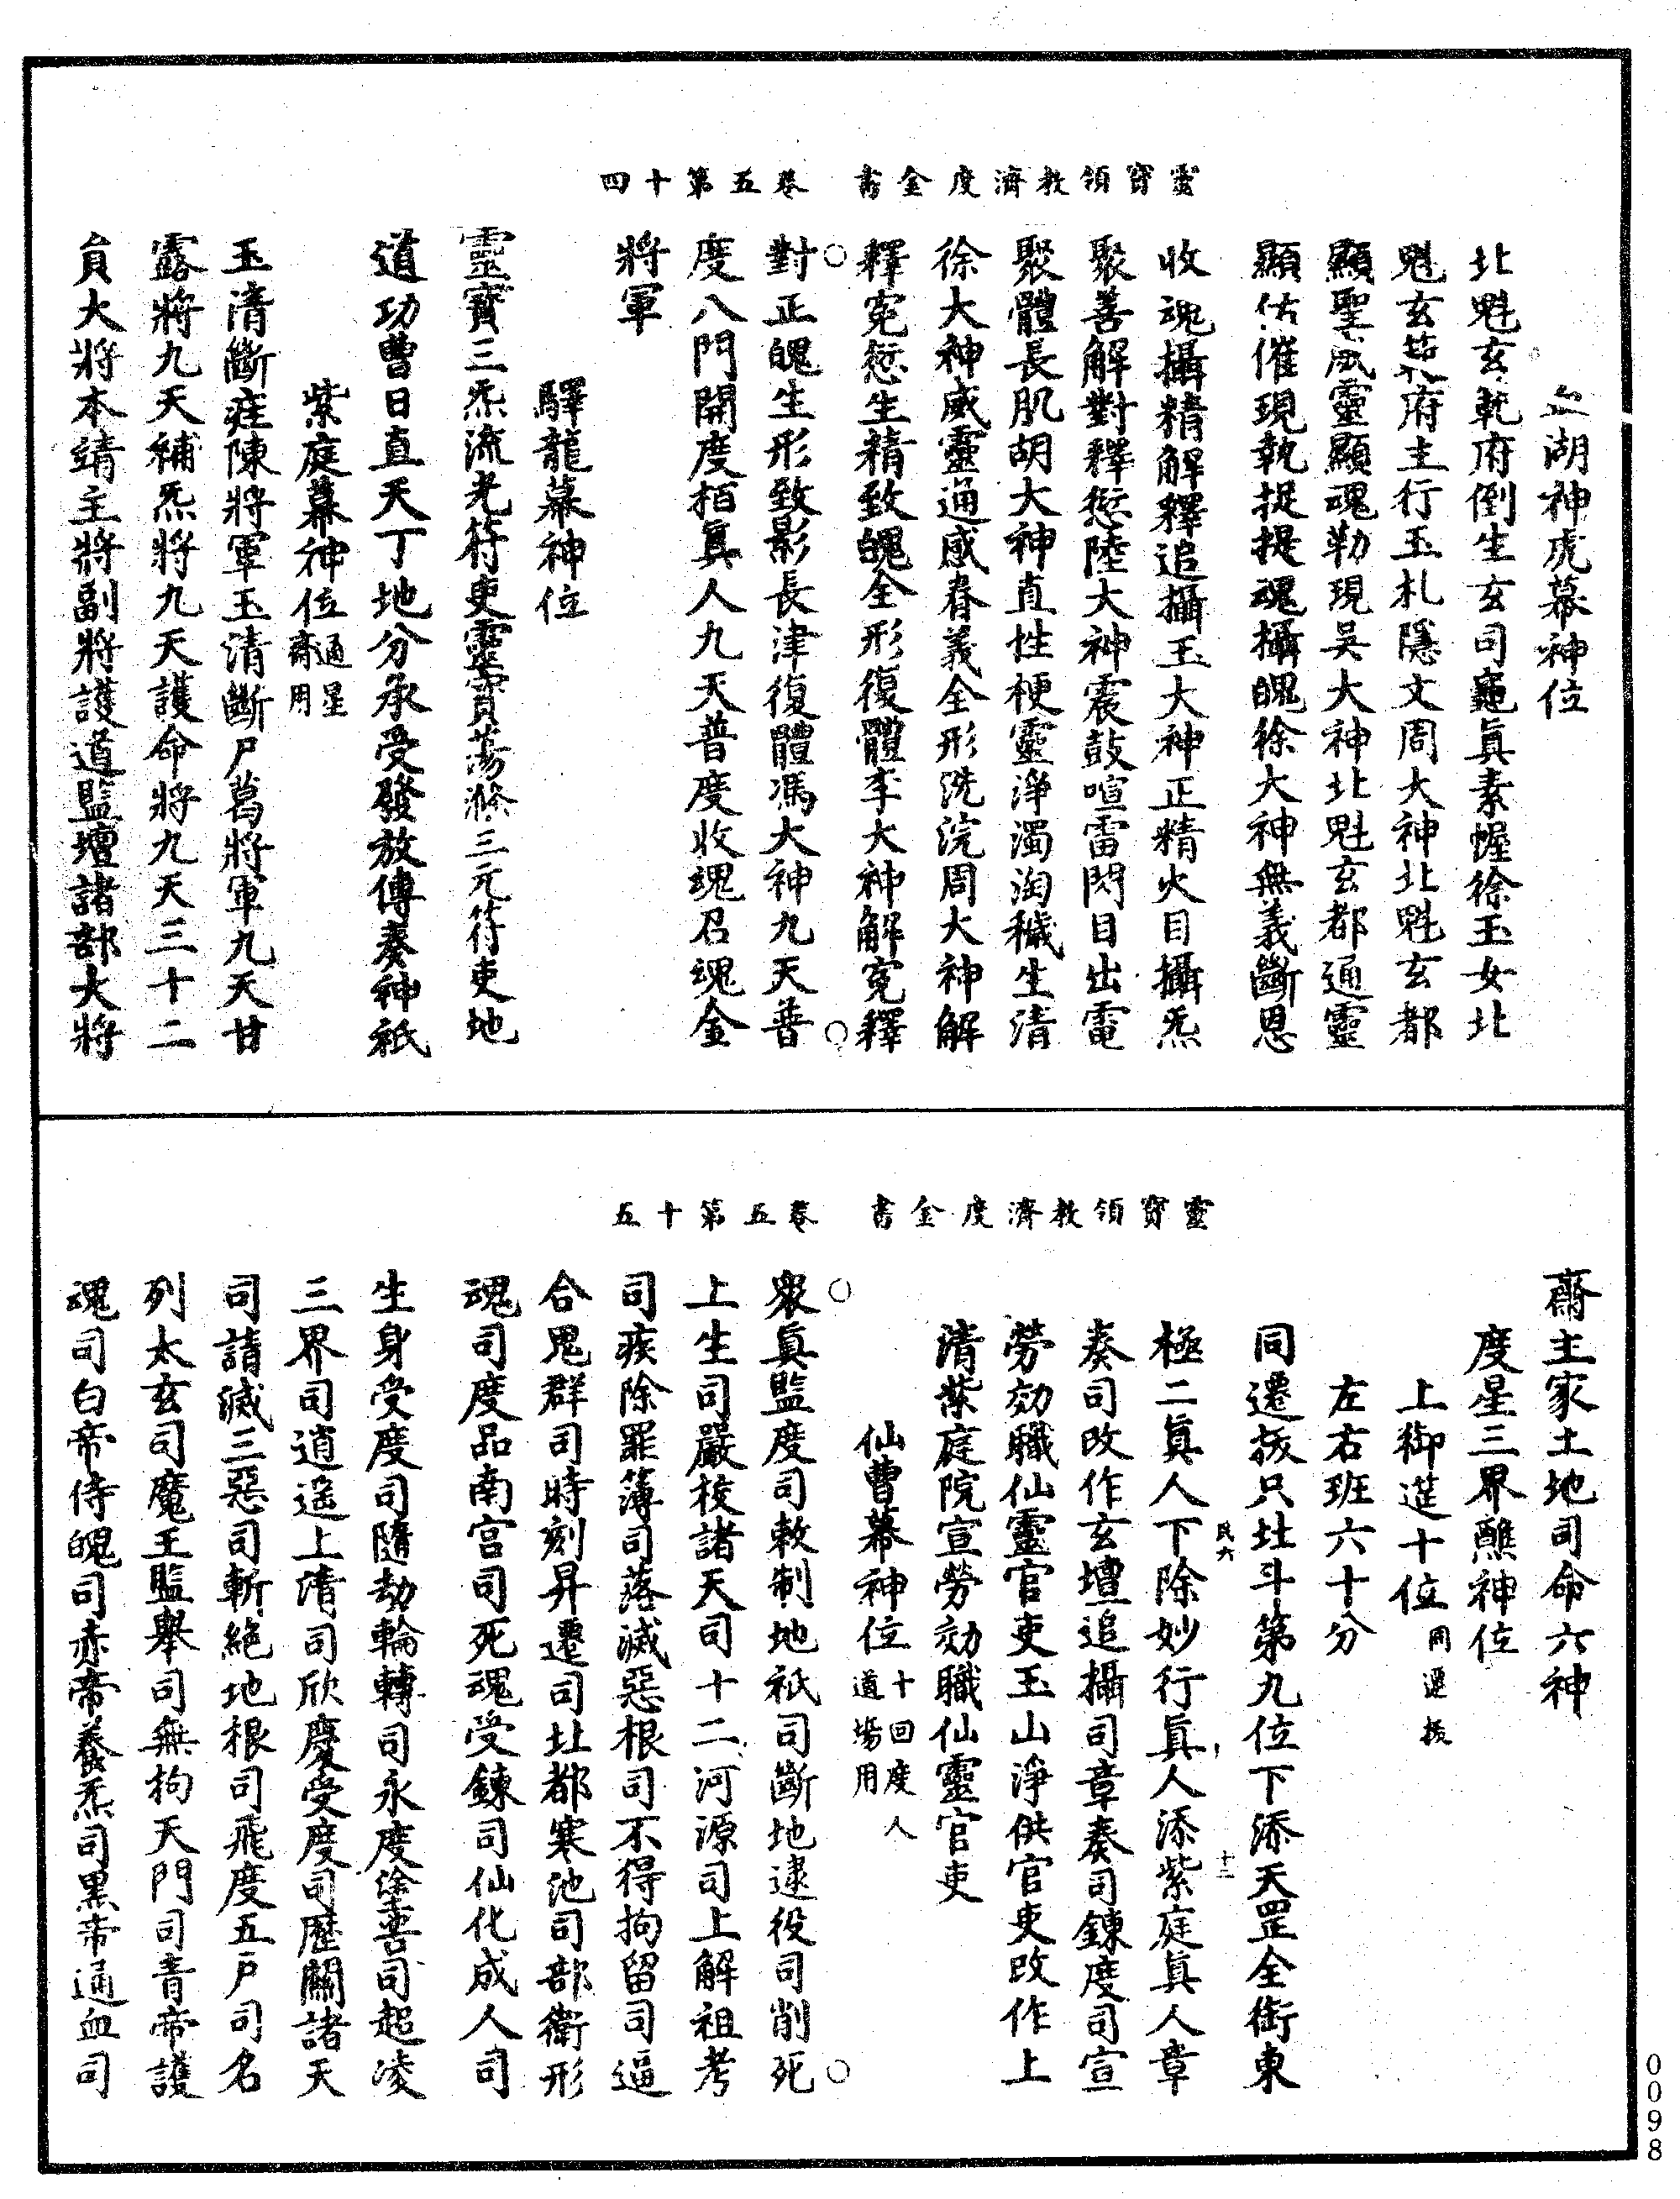 靈寶領教濟度金書　卷五第十四
湖神虎幕神位
北魁玄範府倒生玄司龜眞素幄徐玉女北
魁玄範府主行玉札隱文周大神北魁玄都
顯聖威靈顯魂勒現吳大神北魁玄都通靈
顯佑催現執捉提魂攝魄徐大神無義斷恩
收魂攝精解釋追攝玉大神正精火目攝炁
聚善解對釋愆陸大神震鼓喧雷閃目出電
聚體長肌胡大神直性梗靈淨濁淘穢生清
徐大神威靈通感眷義全形洗浣周大神解
釋寃愆生精致魄全形復體李大神解寃釋
對正魄生形致影長津復體馮大神九天普
度八門開度栢眞人九天普度收魂召魂金
將軍
驛龍幕神位
靈寶三炁流光符吏靈寶蕩滌三元符吏地
道功曹日直天丁地分承受發放傳奏神祇
紫庭幕神位通星齋用
玉清斷痊陳將軍玉清斷尸葛將軍九天甘
露將九天補炁將九天護命將九天三十二
員大將本靖主將副將護道監壇諸部大將
靈寶領教濟度金書　卷五第十五
齋主家土地司命六神
度星三界醮神位
上御筵十位用遷拔
左右班六十分
同遷拔只北斗第九位下添天罡全銜東
極二眞人下除妙行眞人添紫庭眞人章
民六
十二
奏司改作玄壇追攝司章奏司鍊度司宣
勞効職仙靈官吏玉山淨供官吏改作上
清紫庭院宣勞効職仙靈官吏
仙曹幕神位十回度人道場用
衆眞監度司敕制地祇司斷地逮役司削死
上生司嚴校諸天司十二河源司上解祖考
司疾除罪簿司落滅惡根司不得拘留司逼
合鬼群司時刻昇遷司北都寒池司部衛形
魂司度品南宫司死魂受鍊司仙化成人司
生身受度司隨劫輪轉司永度塗善司起凌
三界司逍遙上清司欣慶受度司歷關諸天
司請滅三惡司斬絕地根司飛度五戸司名
列太玄司魔王監舉司無拘天門司青帝護
魂司白帝侍魄司赤帝養炁司黑帝通血司
0098